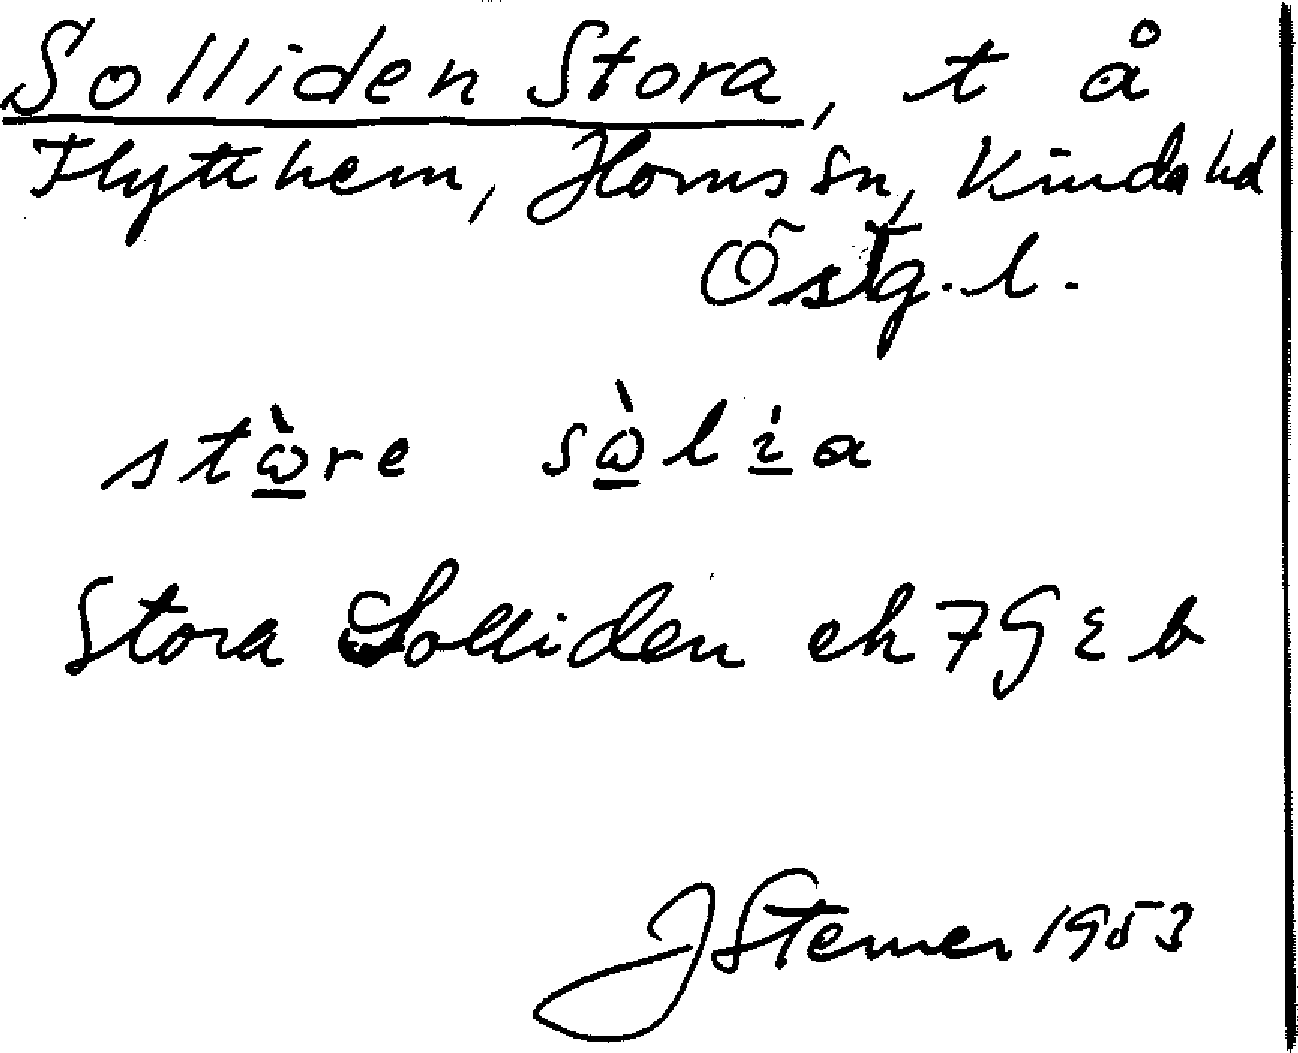 Solliden Stora, t å
Flytthem, Horns sn, Kinda hd
Östg. l.
stὼre sὼlia
Stora Solliden ek 7 G e b
J Sterner 1953